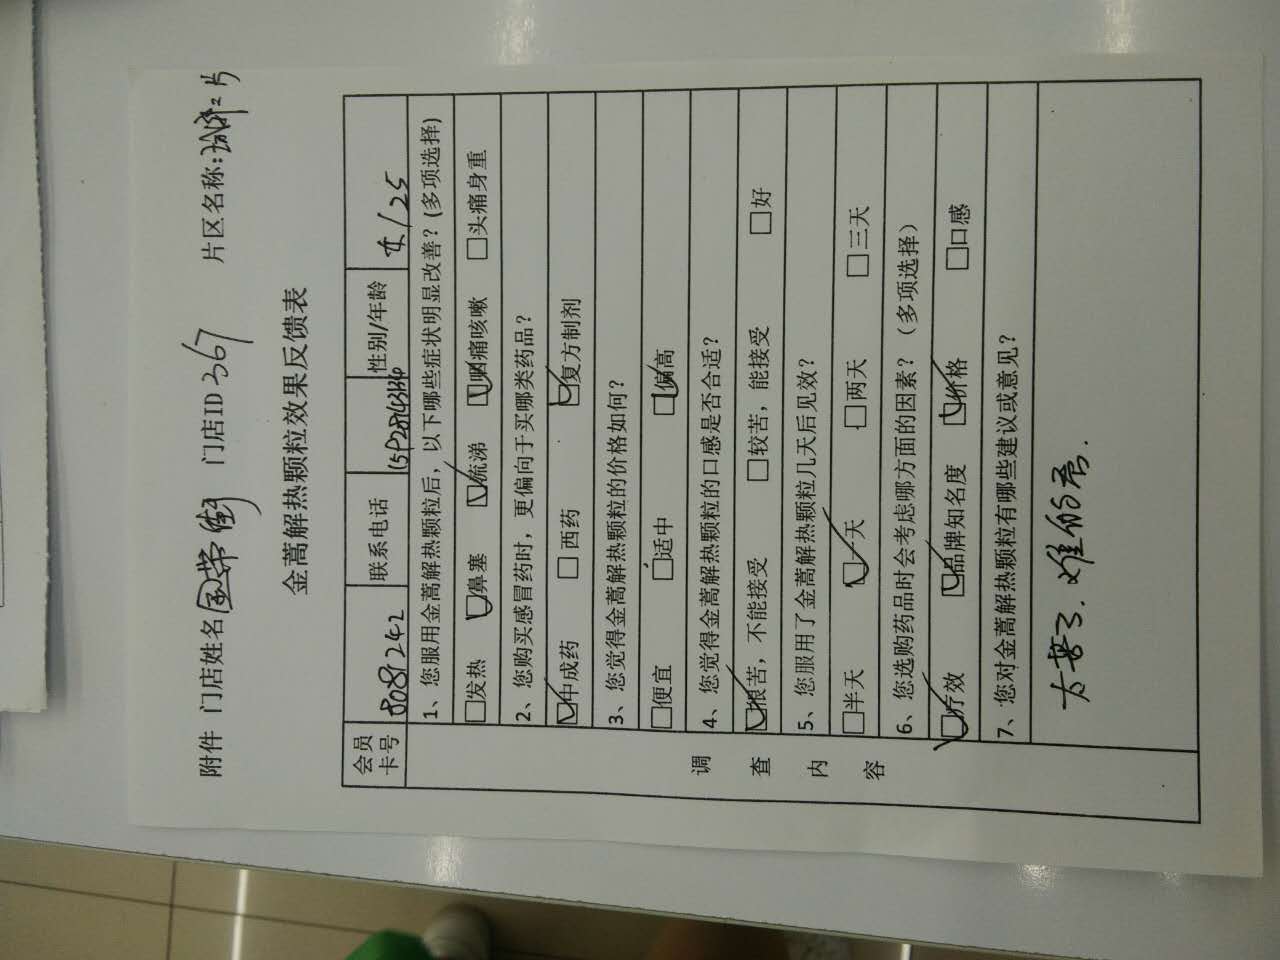 附件 门店姓名 门店ID 367 片区名称:
金蒿解热颗粒效果反馈表
会员卡号 8081242 联系电话 性别/年龄 女/25
调查内容
1、您服用金蒿解热颗粒后，以下哪些症状明显改善？(多项选择)
□发热 ☑鼻塞 ☑流涕 ☑咽痛咳嗽 □头痛身重
2、您购买感冒药时，更偏向于买哪类药品？
☑中成药 □西药 ☑复方制剂
3、您觉得金蒿解热颗粒的价格如何？
□便宜 □适中 ☑偏高
4、您觉得金蒿解热颗粒的口感是否合适？
☑很苦，不能接受 □较苦，能接受 □好
5、您服用了金蒿解热颗粒几天后见效？
□半天 ☑一天 □两天 □三天
6、您选购药品时会考虑哪方面的因素？（多项选择）
☑疗效 ☑品牌知名度 ☑价格 □口感
7、您对金蒿解热颗粒有哪些建议或意见？
太苦了.难